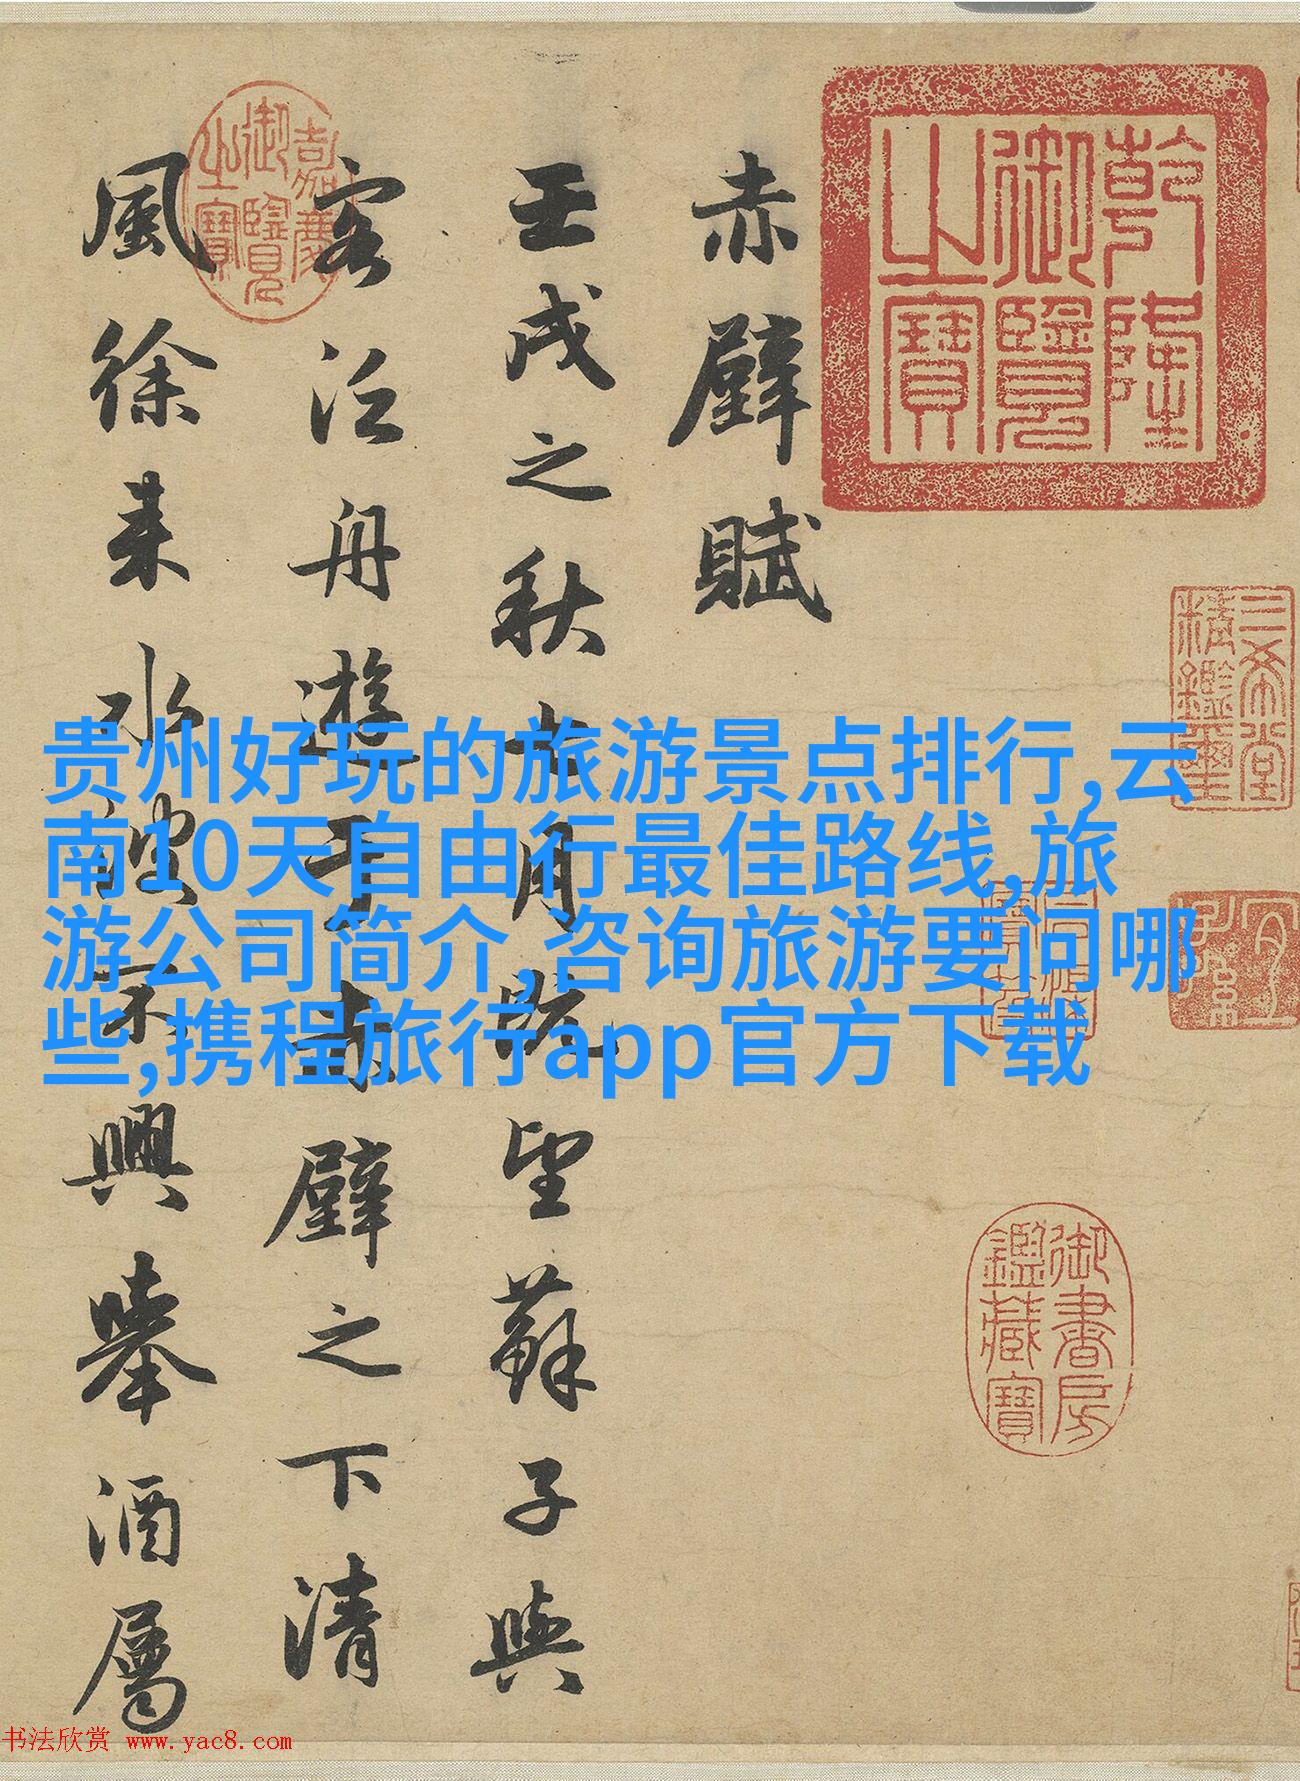 乾隆御覽之寶
三希堂精鑑璽
宜子孫
御書房鑑藏寶
赤壁賦
壬戌之秋七月既望蘇子與
客泛舟遊于赤壁之下清
風徐来水波不興舉酒屬
嘉慶御覽之寶
贵州好玩的旅游景点排行,云
南10天自由行最佳路线,旅
游公司简介,咨询旅游要问哪
些,携程旅行app官方下载
书法欣赏 www.yac8.com